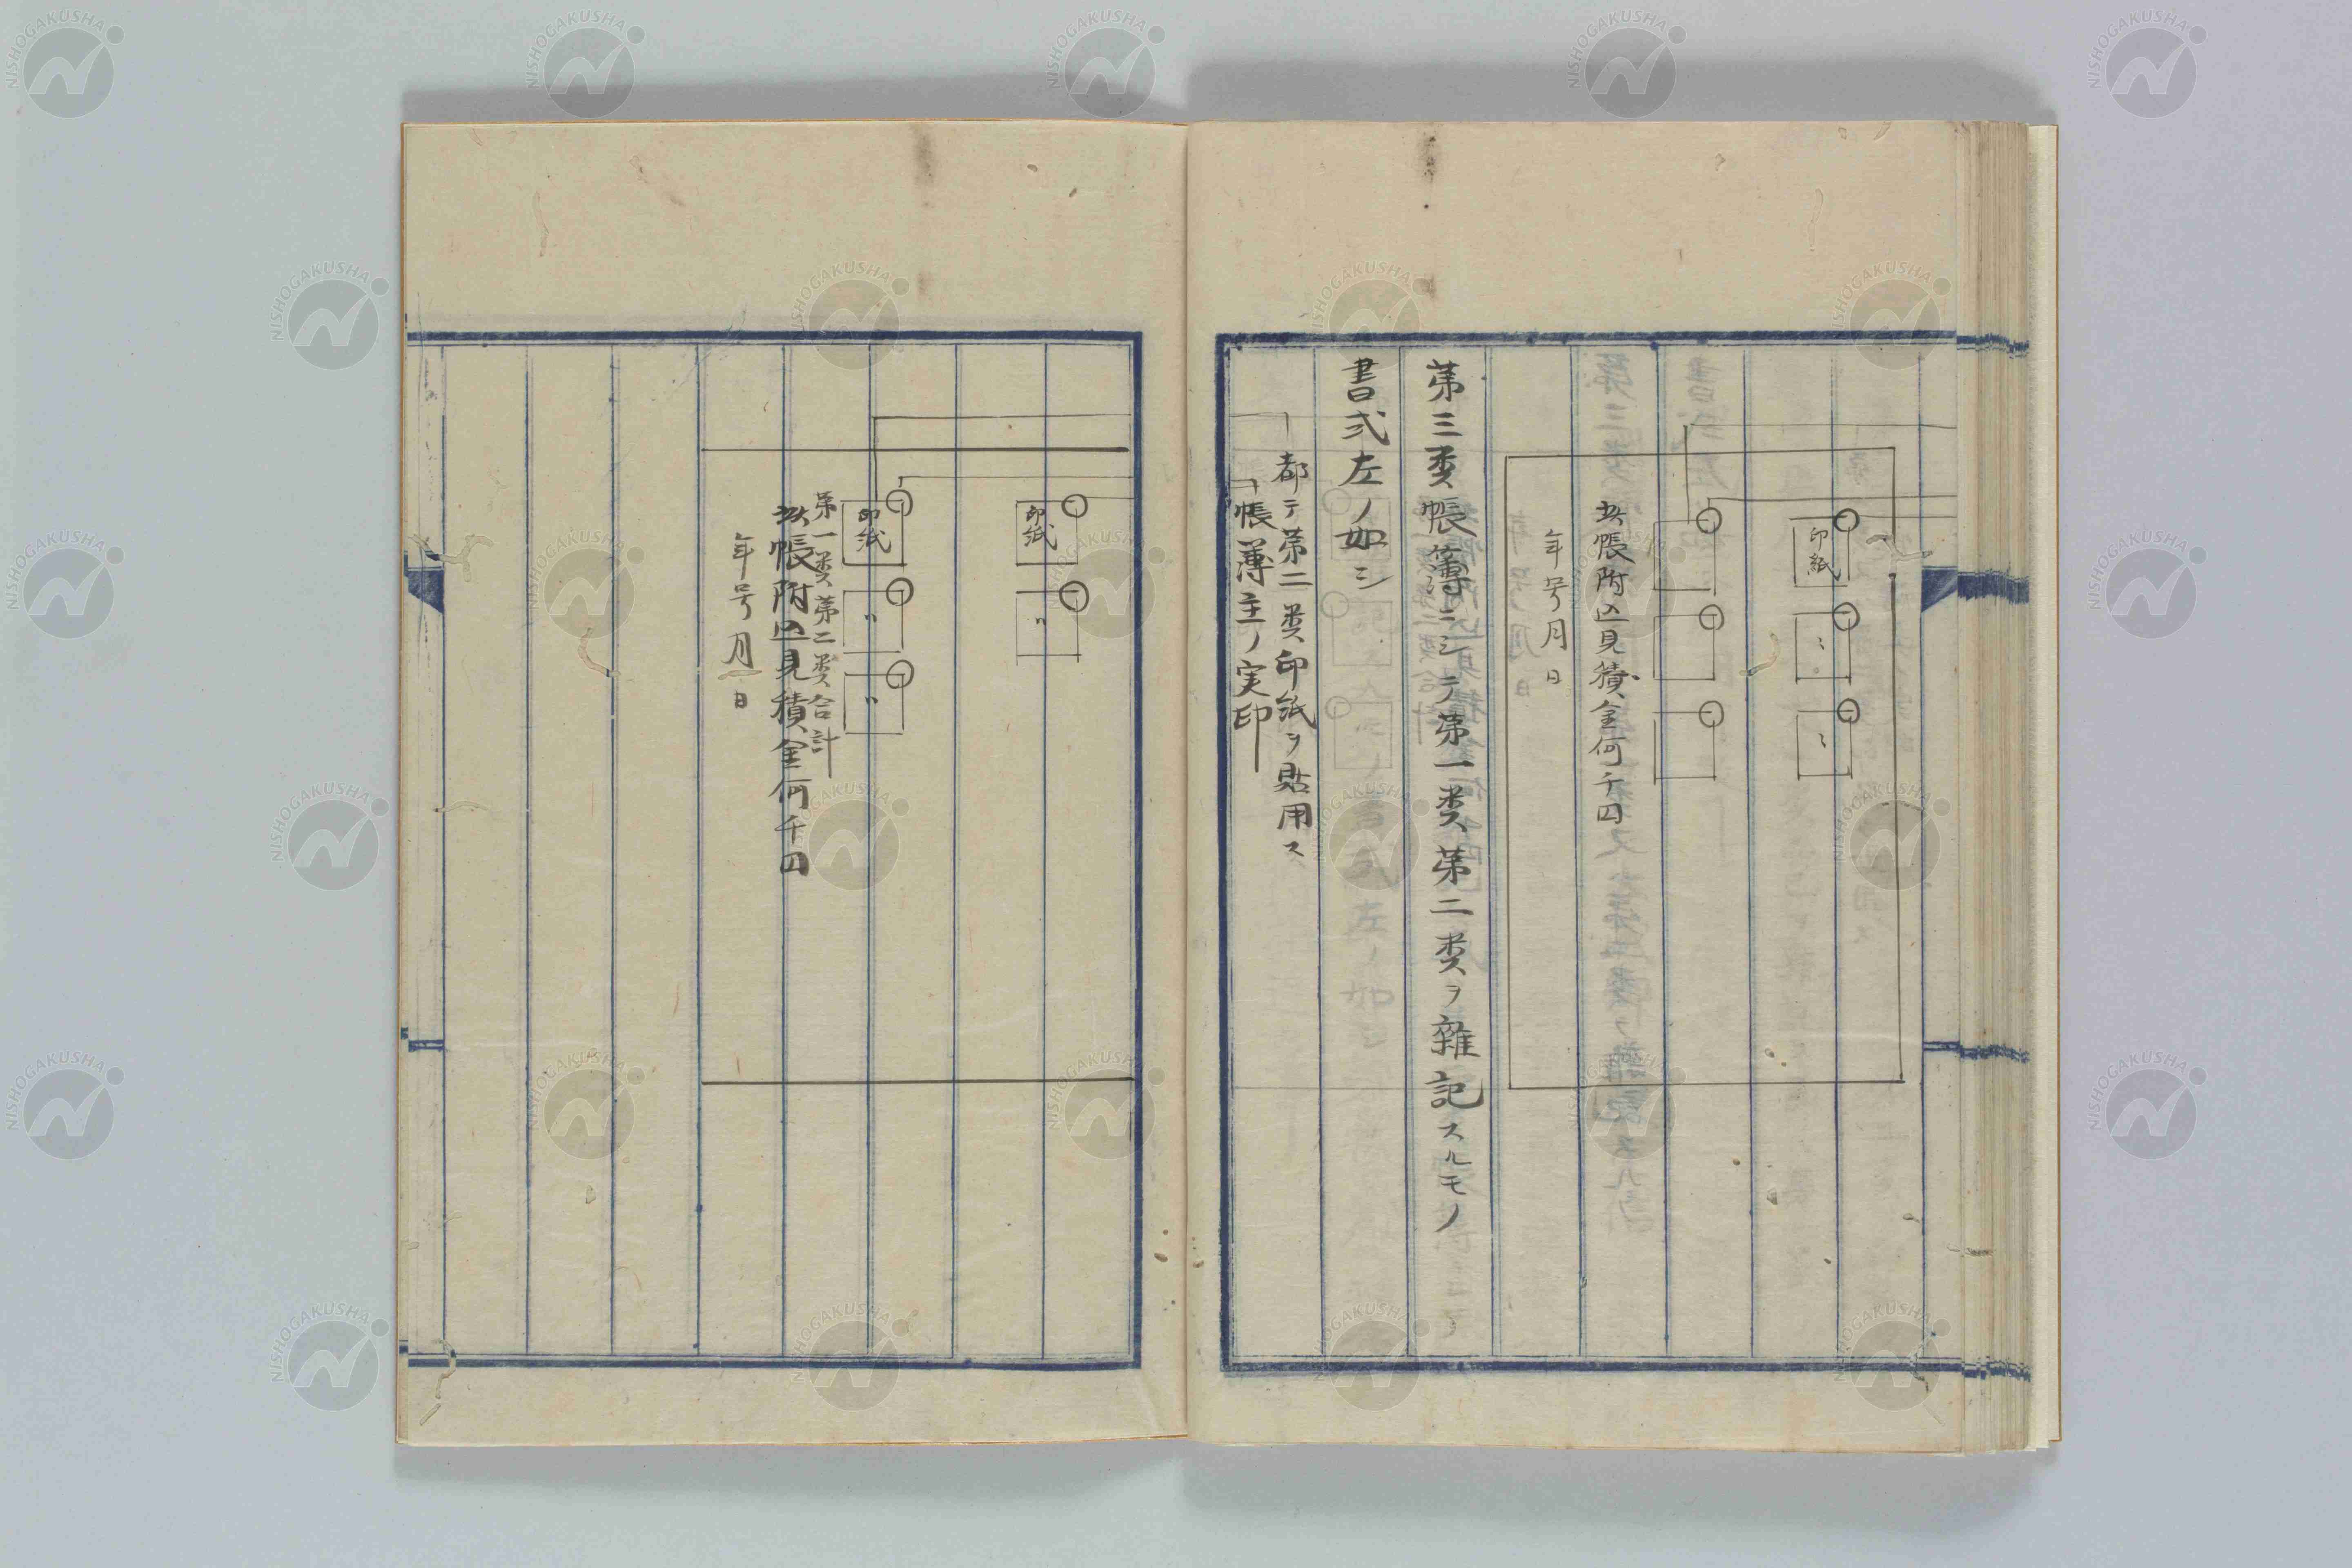 印紙
〃
〃
此帳附込見積金何千円
年号月日
第三類帳簿ニシテ第一類第二類ヲ雑記スルモノ
書式左ノ如シ
都テ第二類印紙ヲ貼用ス
帳簿主ノ実印
印紙
〃
印紙
〃
〃
第一類第二類合計
此帳附込見積金何千円
年号月日
NISHOGAKUSHA